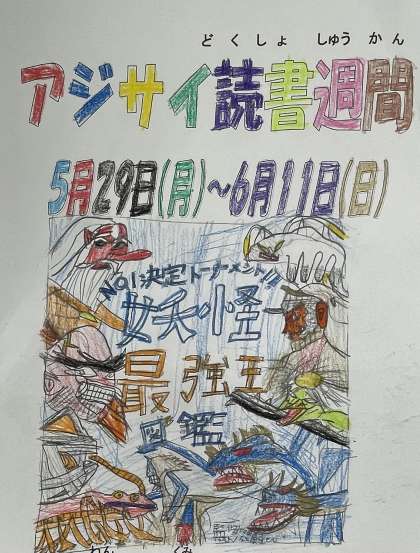 どくしょ しゅうかん
アジサイ読書週間
5月29日(月)~6月11日(日)
No.1決定トーナメント!!
妖怪
最強王
図鑑
ねん くみ